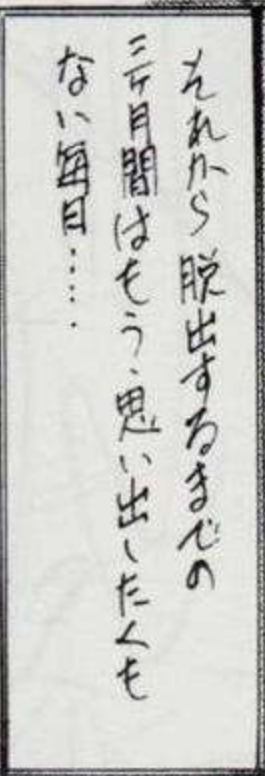 それから脱出するまでの
三ケ月間はもう、思い出したくも
ない毎日……